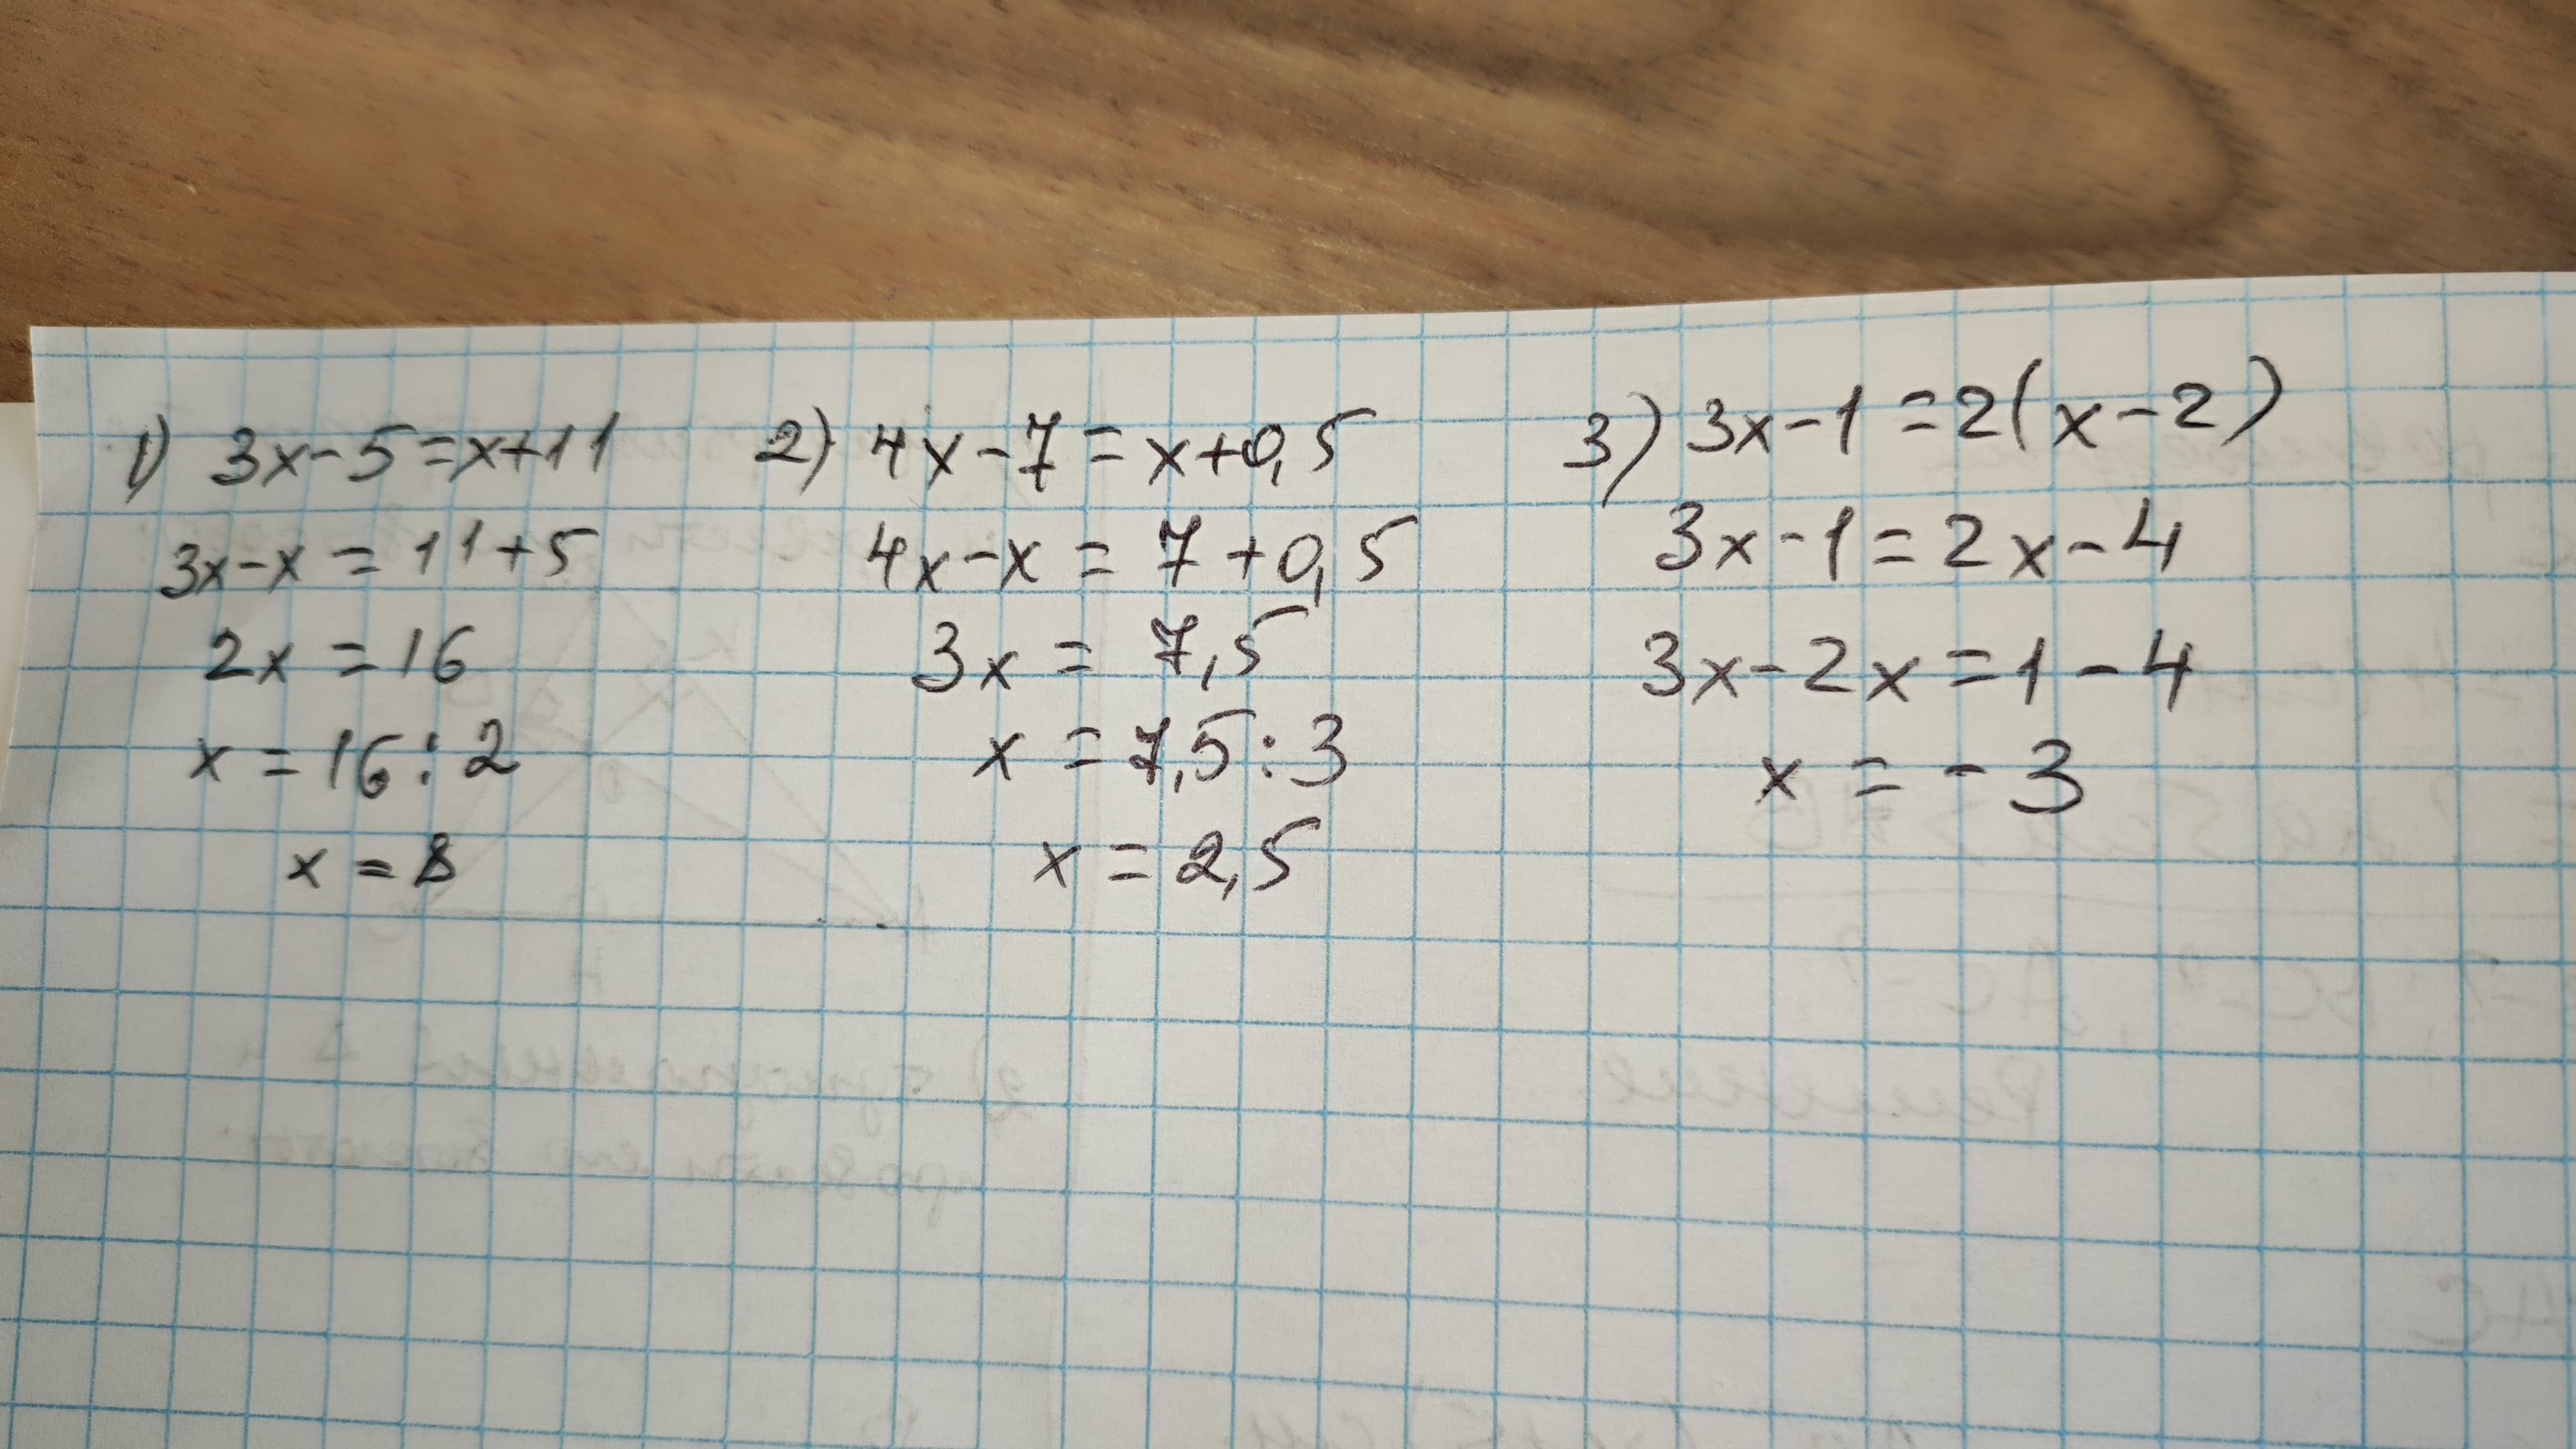 1) 3x-5=x+11
3x-x=11+5
2x=16
x=16:2
x=8
2) 4x-7=x+0,5
4x-x=7+0,5
3x=7,5
x=7,5:3
x=2,5
3) 3x-1=2(x-2)
3x-1=2x-4
3x-2x=1-4
x=-3